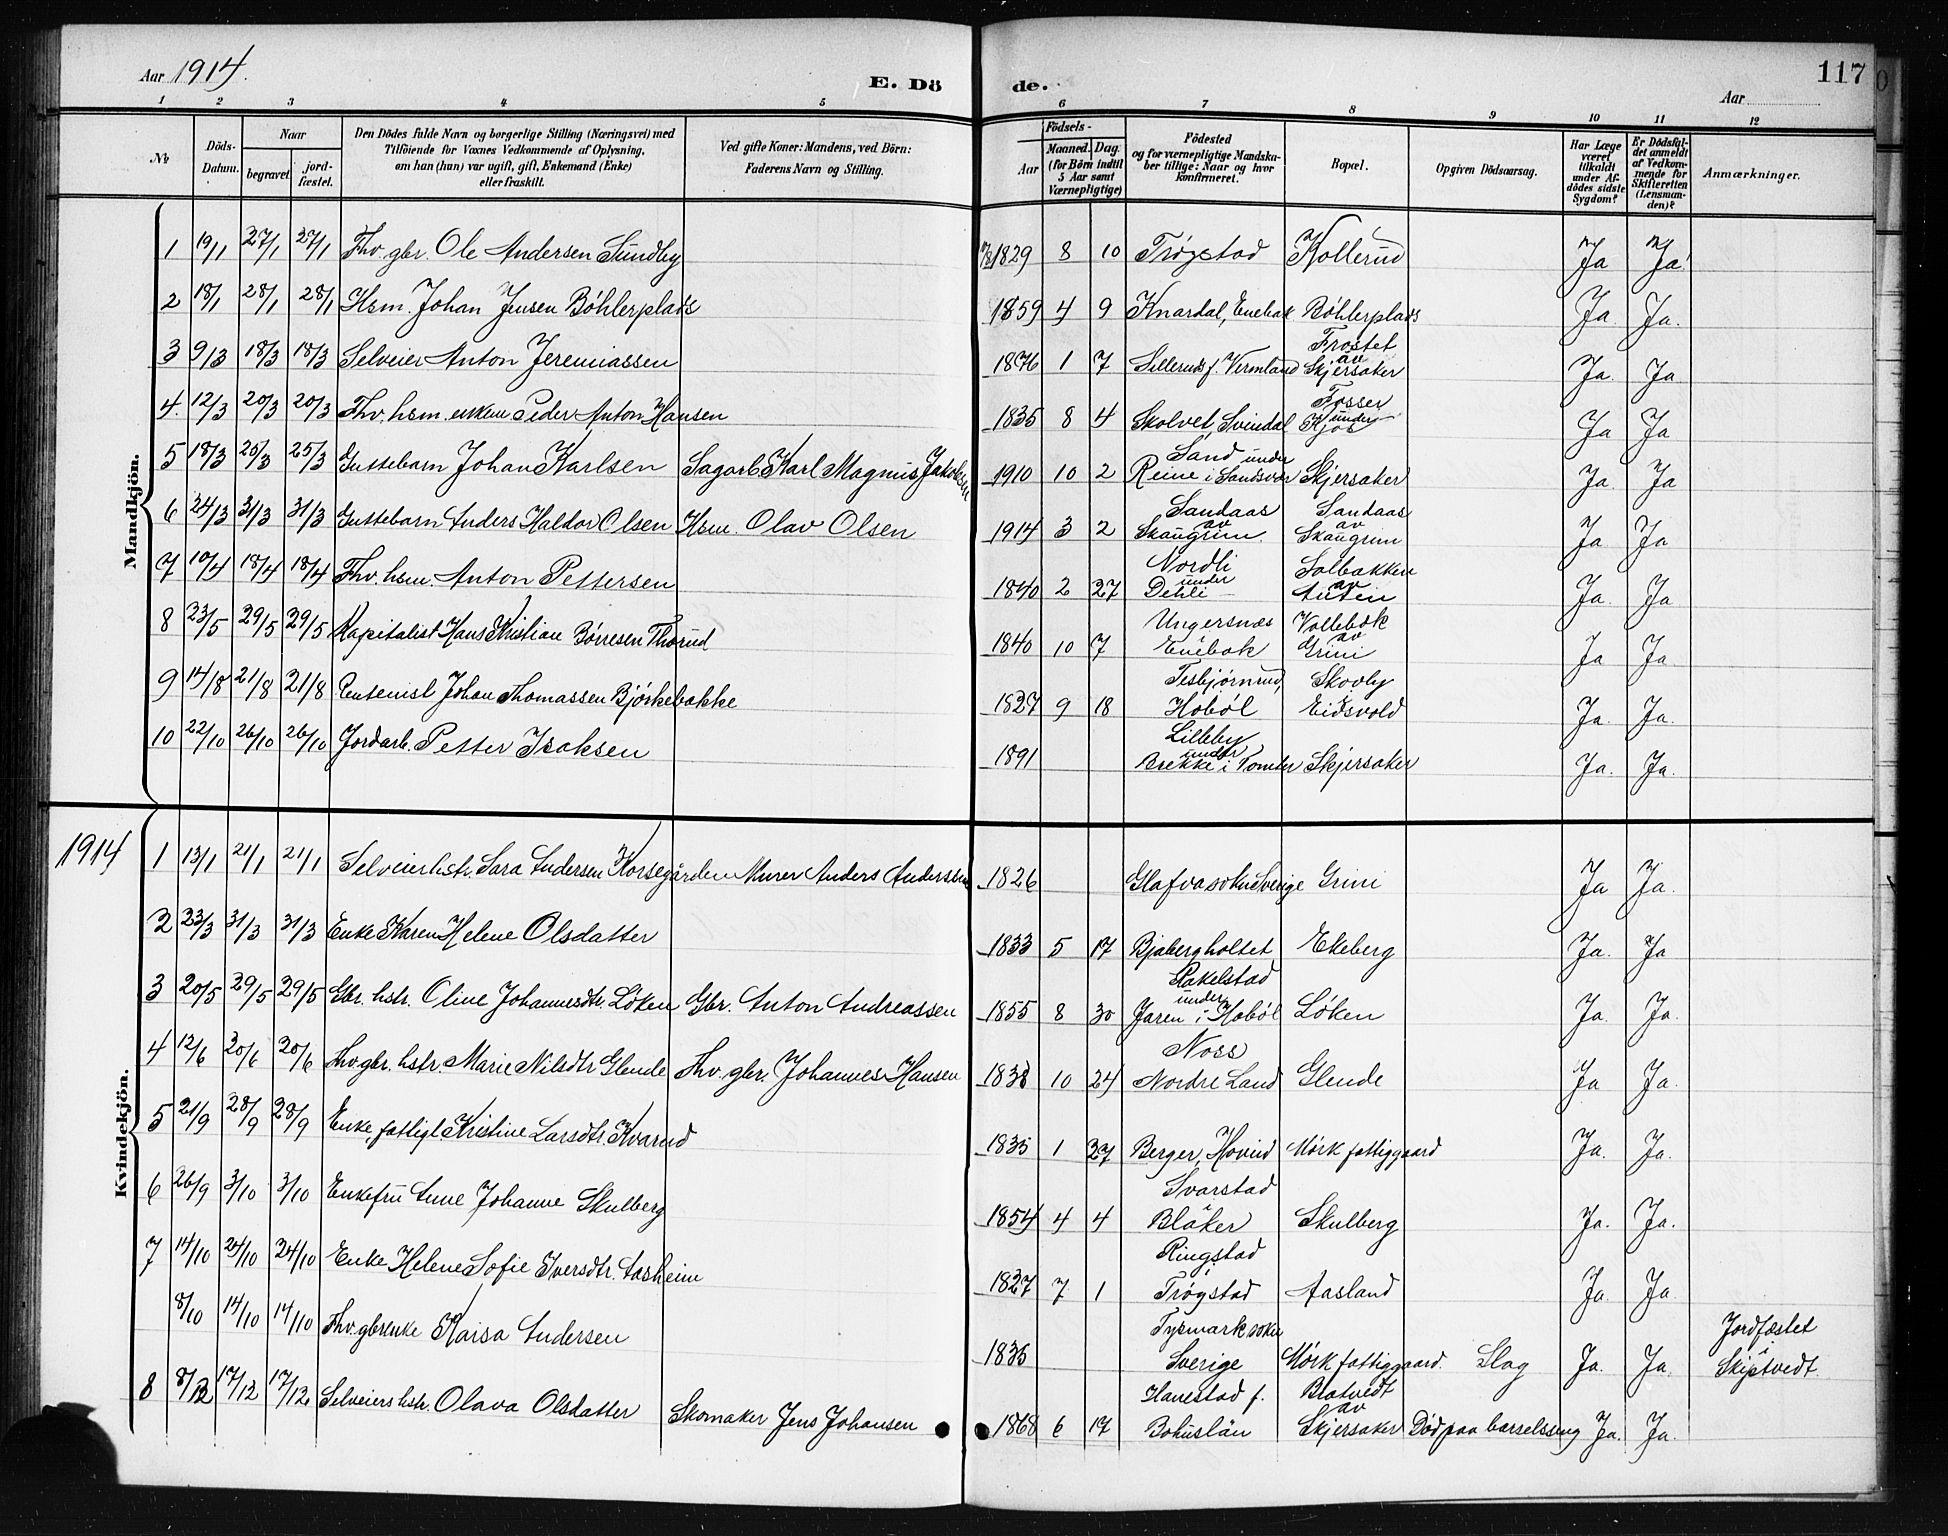 Aar 1914.
E. Dö de.
117
Aar
1 2 3 4 5 6 7 8 9 10 11 12
No
Döds-Datum.
Naar
begravet.
jord-fæstet.
Den Dödes fulde Navn og borgerlige Stilling (Næringsvei) med
Tilföiende for Voxnes Vedkommende af Oplysning,
om han (hun) var ugift, gift, Enkemand (Enke)
eller fraskilt.
Ved gifte Koner: Mandens, ved Börn:
Faderens Navn og Stilling.
Födsels-
Aar
Maaned. Dag
(for Börn indtil
5 Aar samt
Værnepligtige)
Födested
og for værnepligtige Mandska-
ber tillige: Naar og hvor
konfirmeret.
Bopæl.
Opgiven Dödsaarsag.
Har Læge
været
tilkaldt
under Af-
dödes sidste
Sygdom?
Er Dödsfal-
det anmeldt
af Vedkom-
mende for
Skifteretten
(Lensman-
den)?
Anmærkninger.
Mandkjön.
1 19/1 27/1 27/1 Fhv. gbr. Ole Andersen Sundby 1829 8 10 Trøgstad Kollerud Ja Ja
2 18/1 28/1 28/1 Hsm. Johan Jensen Bøhlerplads 1859 4 9 Knardal, Enebak Bøhlerplads Ja Ja.
3 9/3 18/3 18/3 Selveier Anton Jeremiassen 1876 1 7 Sillerud f. Vermland Frostet av Skjersaker Ja. Ja
4. 12/3 20/3 20/3 Fhv. hsm. enkem Peder Anton Hansen 1835 8 4 Skolvet, Svindal Fosser under Kjos Ja Ja
5 18/3 25/3 25/3 Guttebarn Johan Karlsen Sagarb. Karl Magnus Jakobsen 1910 10 2 Reine i Sandsvær Sand under Skjersaker Ja. Ja
6 24/3 31/3 31/3 Guttebarn Anders Haldor Olsen Hsm. Olav Olsen 1914 3 2 Sandaas av Skaugrim. Sandaas av Skaugrim Ja Ja
7 10/4 18/4 18/4 Fhv. hsm. Anton Pettersen 1840 2 27 Nordli under Dehli Solbakken av Auten Ja. Ja
8 23/5 29/5 29/5 Kapitalist Hans Kristian Børresen Thorud 1840 10 7 Ungersnæs Enebak Vollebæk av Grini Ja Ja.
9 14/8 21/8 21/8 Pensenist Johan Thomassen Bjørkebakke 1827 9 18 Tesbjørnrud, Hobøl Skovly Eidsvold Ja. Ja.
10 22/10 26/10 26/10 Jordarb. Petter Isaksen 1891 Lilleby under Brekke i Tomter Skjersaker Ja. Ja.
1914
Kvindekjön.
1 13/1 21/1 21/1 Selveierhstr. Sara Andersen Korsegården Murer Anders Anderssen 1826 Glafva sokn Sverige Grini Ja Ja.
2 23/3 31/3 31/3 Enke Karen Helene Olsdatter 1833 5 17 Bjabergholtet Ekeberg Ja. Ja
3 20/5 29/5 29/5 Gbr. hstr. Oline Johannesdtr. Løken Gbr. Anton Andreassen 1855 8 30 Rakelstad under Jaren i Hobøl Løken Ja. Ja.
4 12/6 20/6 20/6 Fhv. gbr. hstr. Marie Nilsdtr Glende Fhv. gbr. Johannes Hansen 1838 10 24 Noss Nordre Land Glende Ja Ja.
5 21/9 28/9 28/9 Enke, fattigl Kristine Larsdtr. Kvarud 1835 1 27 Berger, Hovind Mørk fattiggaard Ja. Ja.
6 26/9 3/10 3/10 Enkefru Anne Johanne Skulberg 1854 4 4 Svarstad i Blaker Skulberg Ja. Ja.
7 14/10 24/10 24/10 Enke Helene Sofie Iversdtr. Aasheim 1827 7 1 Ringstad i Trøgstad Aasland Ja. Ja
8/10 14/10 14/10 Fhv. gbrenke Kaisa Andersen 1835 Tysmark sokn Sverige Mørk fattiggaard. Slag Ja. Ja. Jordfæstet i Skiptvedt.
8 8/12 17/12 17/12 Selveiers hstr. Olava Olsdatter Skomaker Jens Johansen 1868 6 17 Hanestad f. Bohuslän Bratvedt av Skjersaker Død paa barselsseng Ja. Ja.